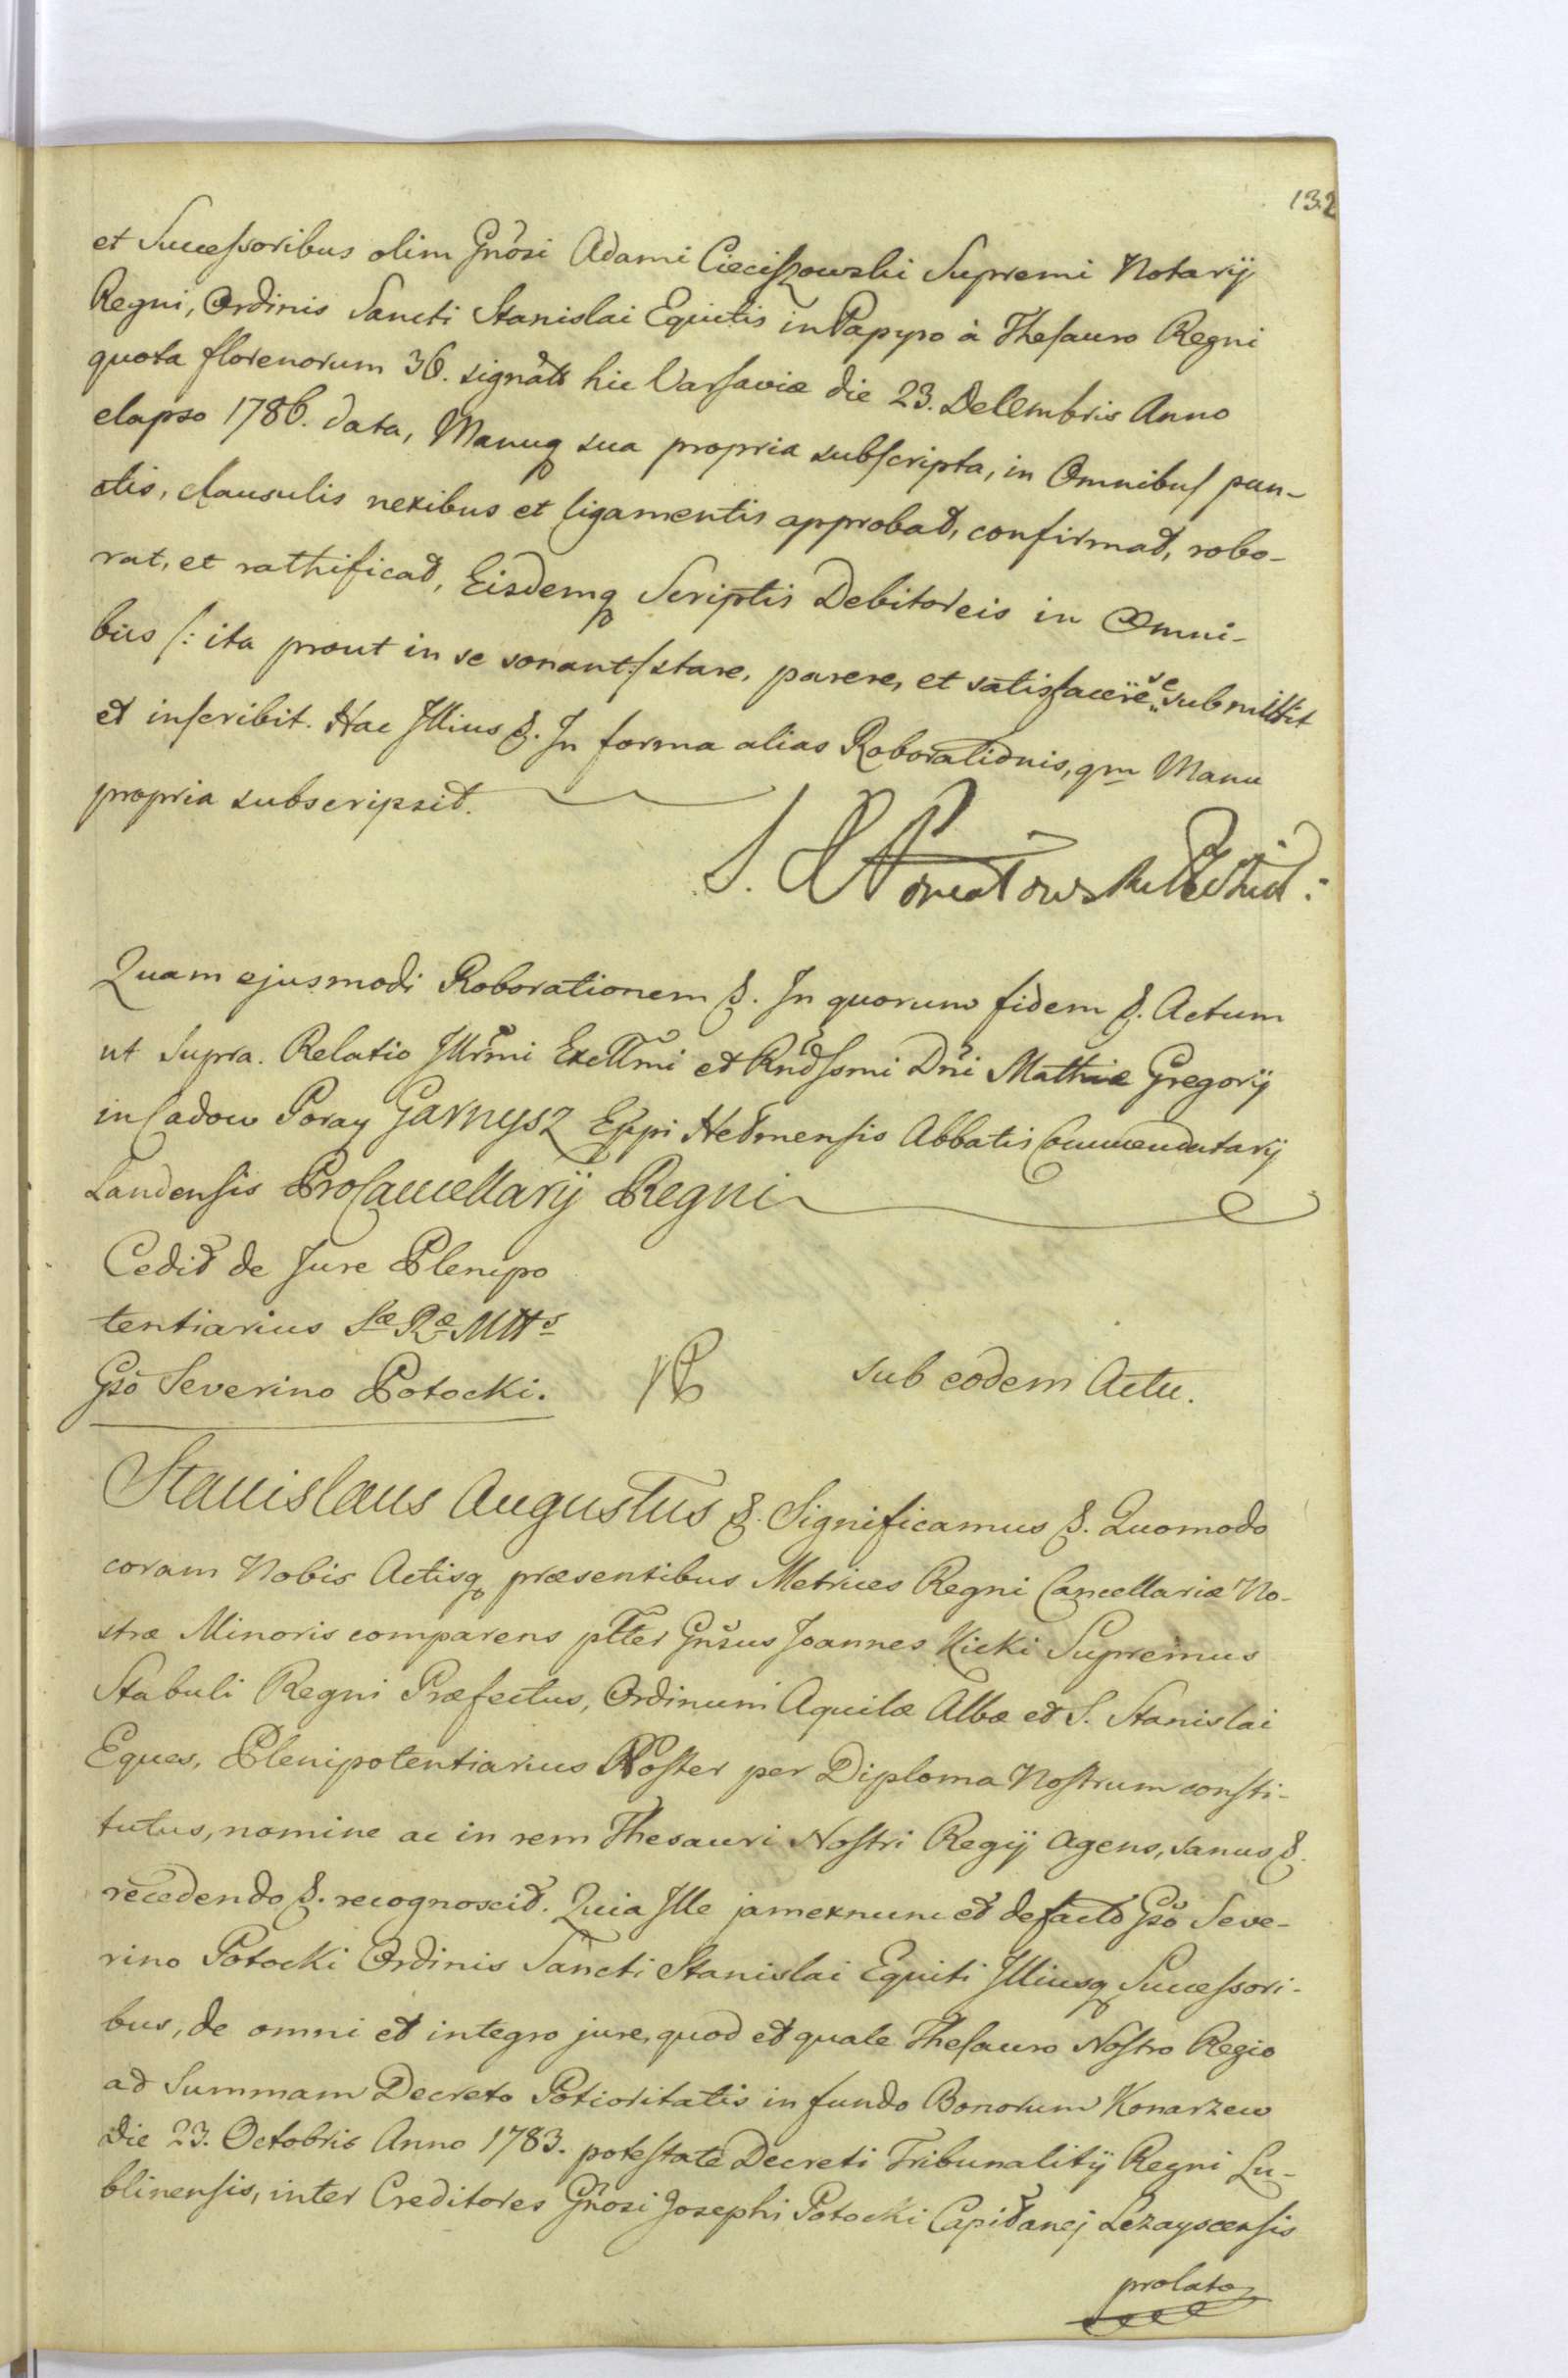 132
et Successoribus olim Gnősi Adami Cieciszowski Supremi Notarÿ
Regni, Ordinis Sancti Stanislai Equitis in Papyro à Thesauro Regni
quota florenorum 36. signata hic Varsaviæ die 23. Decembris Anno
elapso 1786. data, Manuq sua propria subscripta, in Omnibus pun-
ctis, clausulis nexibus et ligamentis approbat, confirmat, robo-
rat, et rathificat, Eisdemq Scriptis Debitoreis in Omni-
bus /: ita prout in se sonant :/ stare, parere, et satisfacere se submittit
et inscribit. Hac Illius &. In forma alias Roborationis, qm Manu
propria subscripsit.
Quam ejusmodi Roborationem &. In quorum fidem &. Actum
ut Supra. Relatio Illrmi Excllmi et Rndssmi Dni Mathiæ Gregorÿ
in Cadow Poray Garnysz Eppi Helmensis Abbatis Commendatarÿ
Landensis ProCancellarÿ Regni
Cedit de Jure Plenipo
tentiarius Sæ Ræ Mtts
Gső Severino Potocki.
sub eodem Actu.
Stanislaus Augustus &. Significamus &. Quomodo
coram Nobis Actisq præsentibus Metrices Regni Cancellariæ No-
stræ Minoris comparens pltter Gnsus Joannes Kicki Supremus
Stabuli Regni Præfectus, Ordinum Aquilæ Albæ et S. Stanislai
Eques, Plenipotentiarius Noster per Diploma Nostrum consti-
tutus, nomine ac in rem Thesauri Nostri Regÿ agens, sanus &.
recedendo &. recognoscit. Quia Ille jam exnunc et defacto Gső Seve-
rino Potocki Ordinis Sancti Stanislai Equiti Illiusq Successori-
bus, de omni et integro jure, quod et quale Thesauro Nostro Regio
ad Summam Decreto Potioritatis in fundo Bonorum Konarzew
die 23. Octobris Anno 1783. potestate Decreti Tribunalitÿ Regni Lu-
blinensis, inter Creditores Gnősi Josephi Potocki Capitanej Lezayscensis
prolato